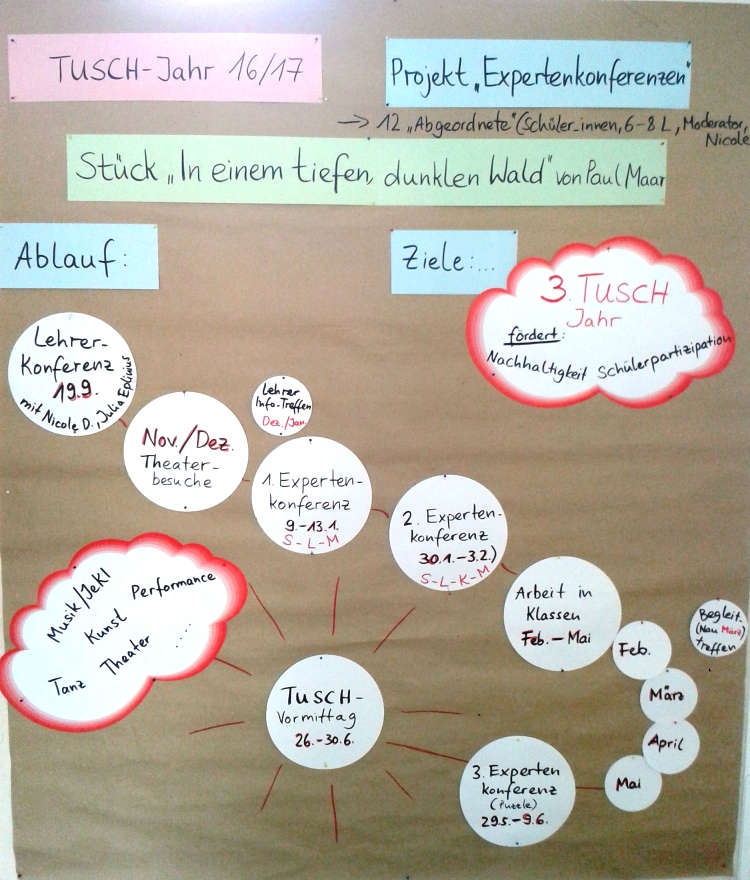 TUSCH-Jahr 16/17
Projekt „Expertenkonferenzen"
→ 12 „Abgeordnete" (Schüler_innen, 6-8 L, Moderator,
Nicole
Stück „In einem tiefen, dunklen Wald" von Paul Maar
Ablauf:
Ziele:...
3. TUSCH
Jahr
fördert:
Nachhaltigkeit Schülerpartizipation
Lehrer-
Konferenz
19.9.
mit Nicole D., Julia
Nov./Dez.
Theater-
besuche
Lehrer
Info-Treffen
Dez./Jan
1. Experten-
konferenz
9.-13.1.
S-L-M
2. Experten-
konferenz
30.1.-3.2.)
S-L-K-M
Arbeit in
Klassen
Feb.-Mai
Feb.
März
April
Mai
Begleit-
März)
treffen
3. Experten
konferenz
(Puzzle)
29.5.-9.6.
TUSCH-
Vormittag
26.-30.6.
Musik/JeKI
Performance
Kunst
Theater
.....
Tanz